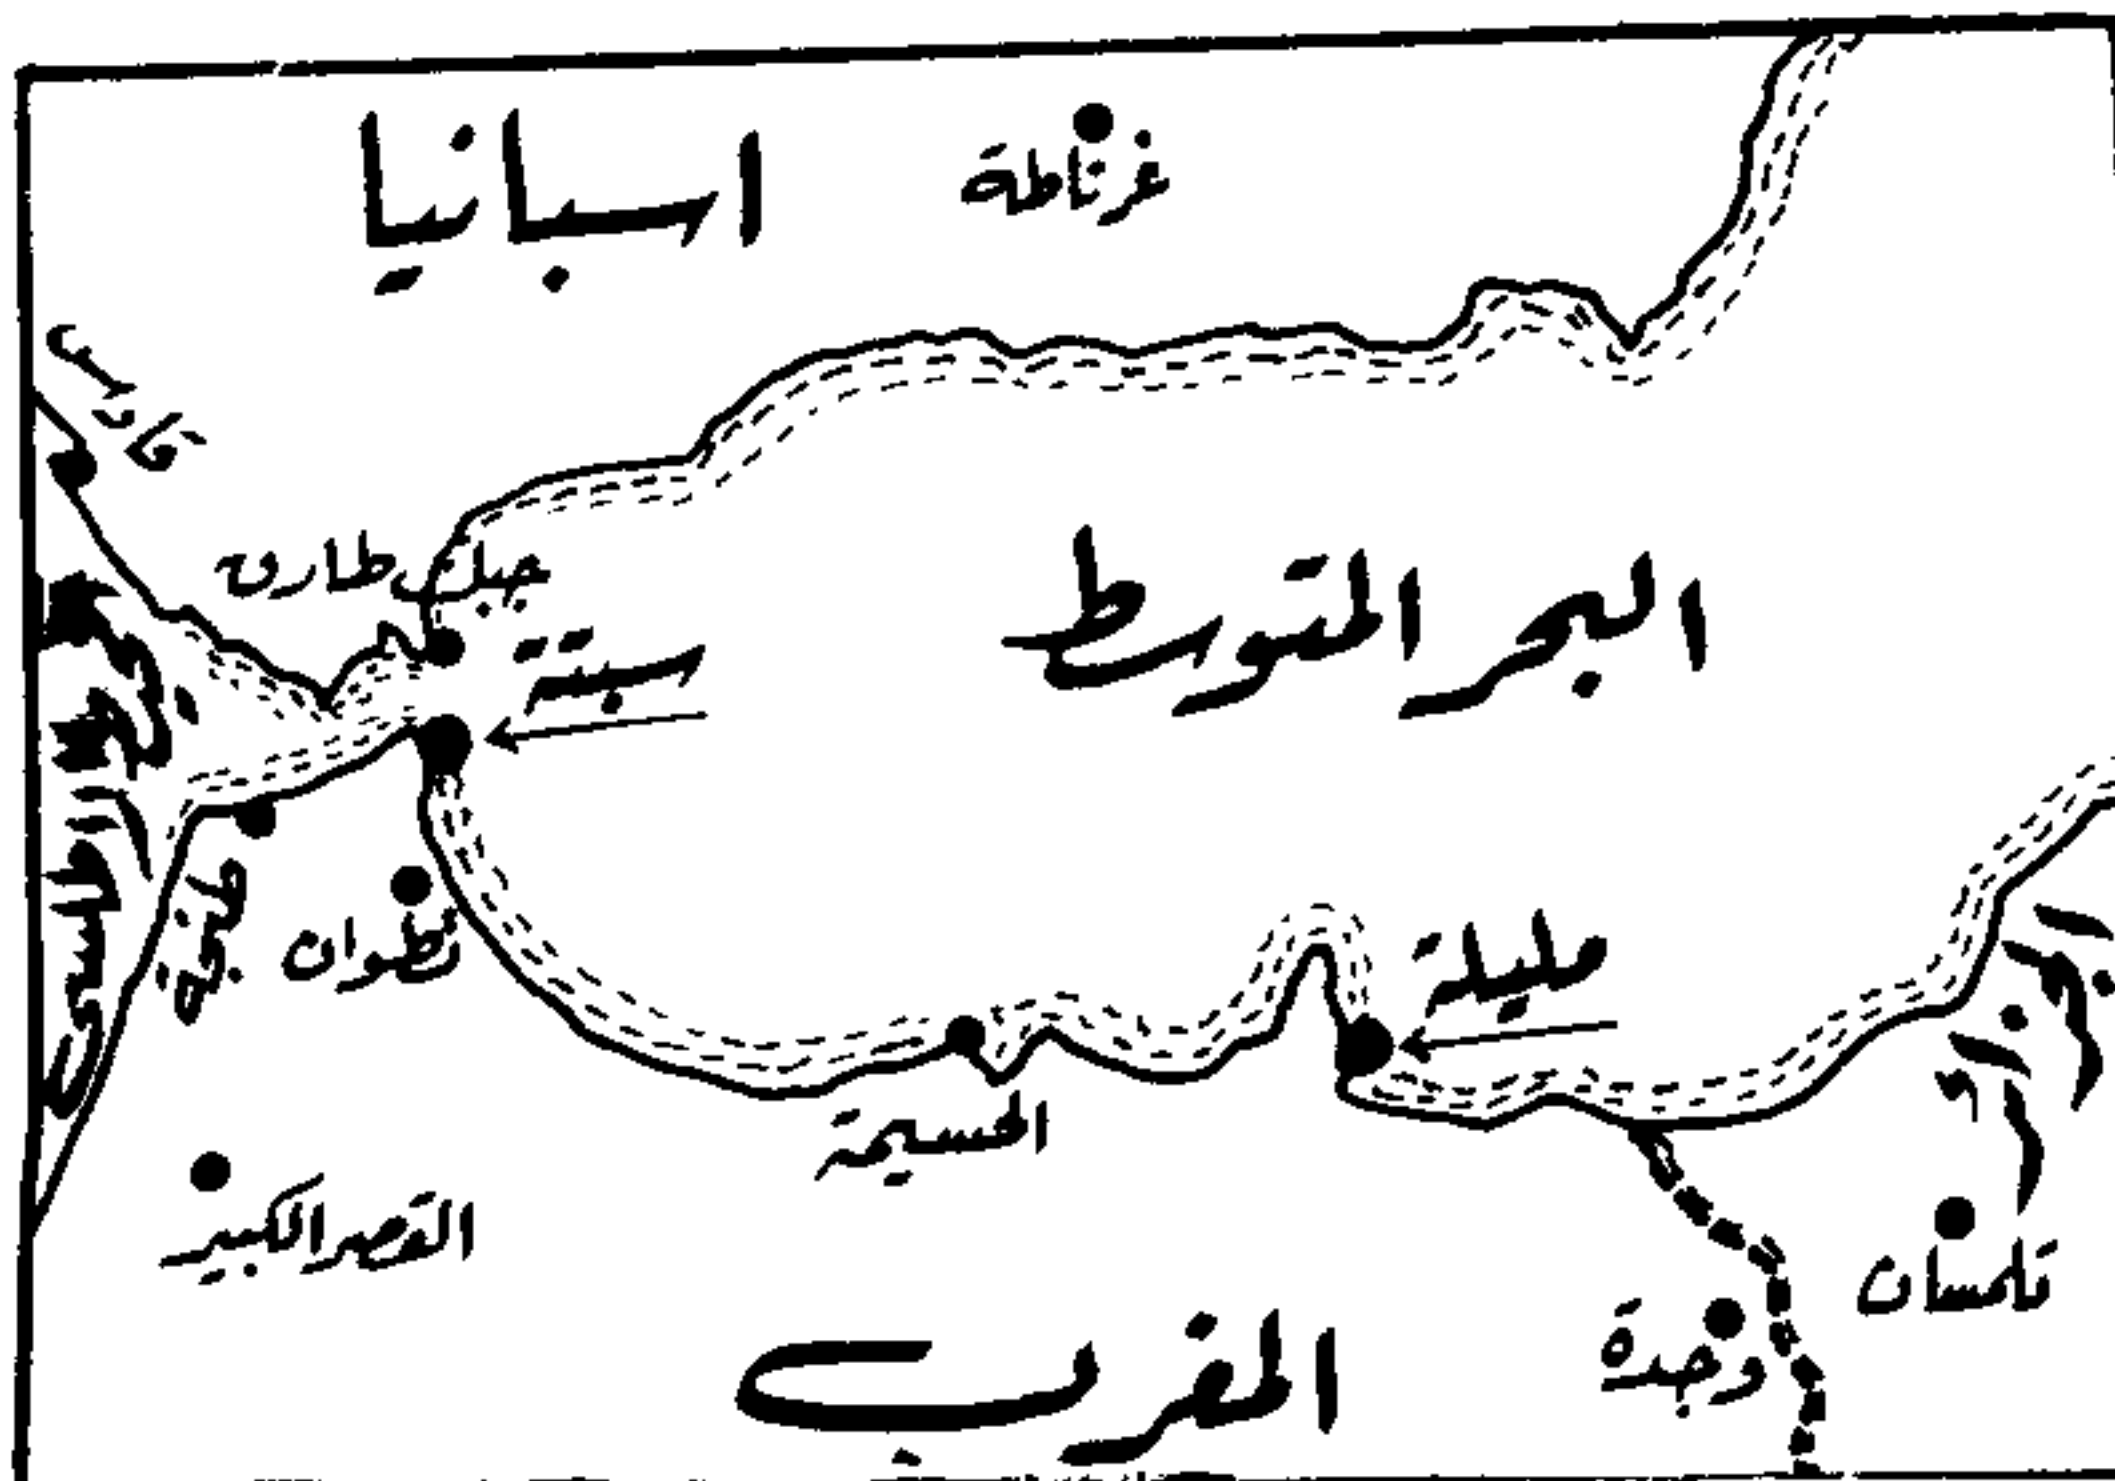 اسبانيا
غرناطة
قادس
جبل طارق
سبتة
البحر المتوسط
طنجة
تطوان
مليلة
الحسيمة
القصر الكبير
تلمسان
وجدة
المغرب